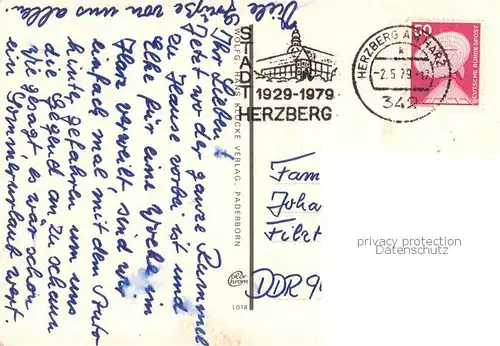 Viele
Grüße von uns allen
Ihr Lieben!
Jetzt wo der ganze Rummel
zu Hause vorbei ist und
Elke für eine Woche im
Harz verweilt, sind wir
einfach mal mit dem Auto
hinter gefahren um uns
die Gegend an zu schauen
wie gesagt es wär schon
ein Sommerurlaub wert.
WOLFG. HANS KLOCKE VERLAG, PADERBORN
color
chrom
1018
STADT
1929-1979
HERZBERG
HERZBERG AM HARZ
k
-2.5.79-17
342
50
DEUTSCHE BUNDESPOST
Fam
Joha
Filt
DDR 9
privacy protection
Datenschutz